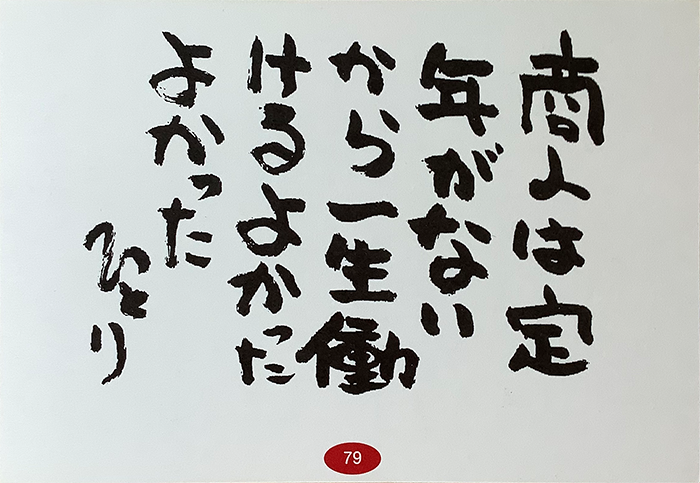 商人は定
年がない
から一生働
けるよかった
よかった
ひとり
79